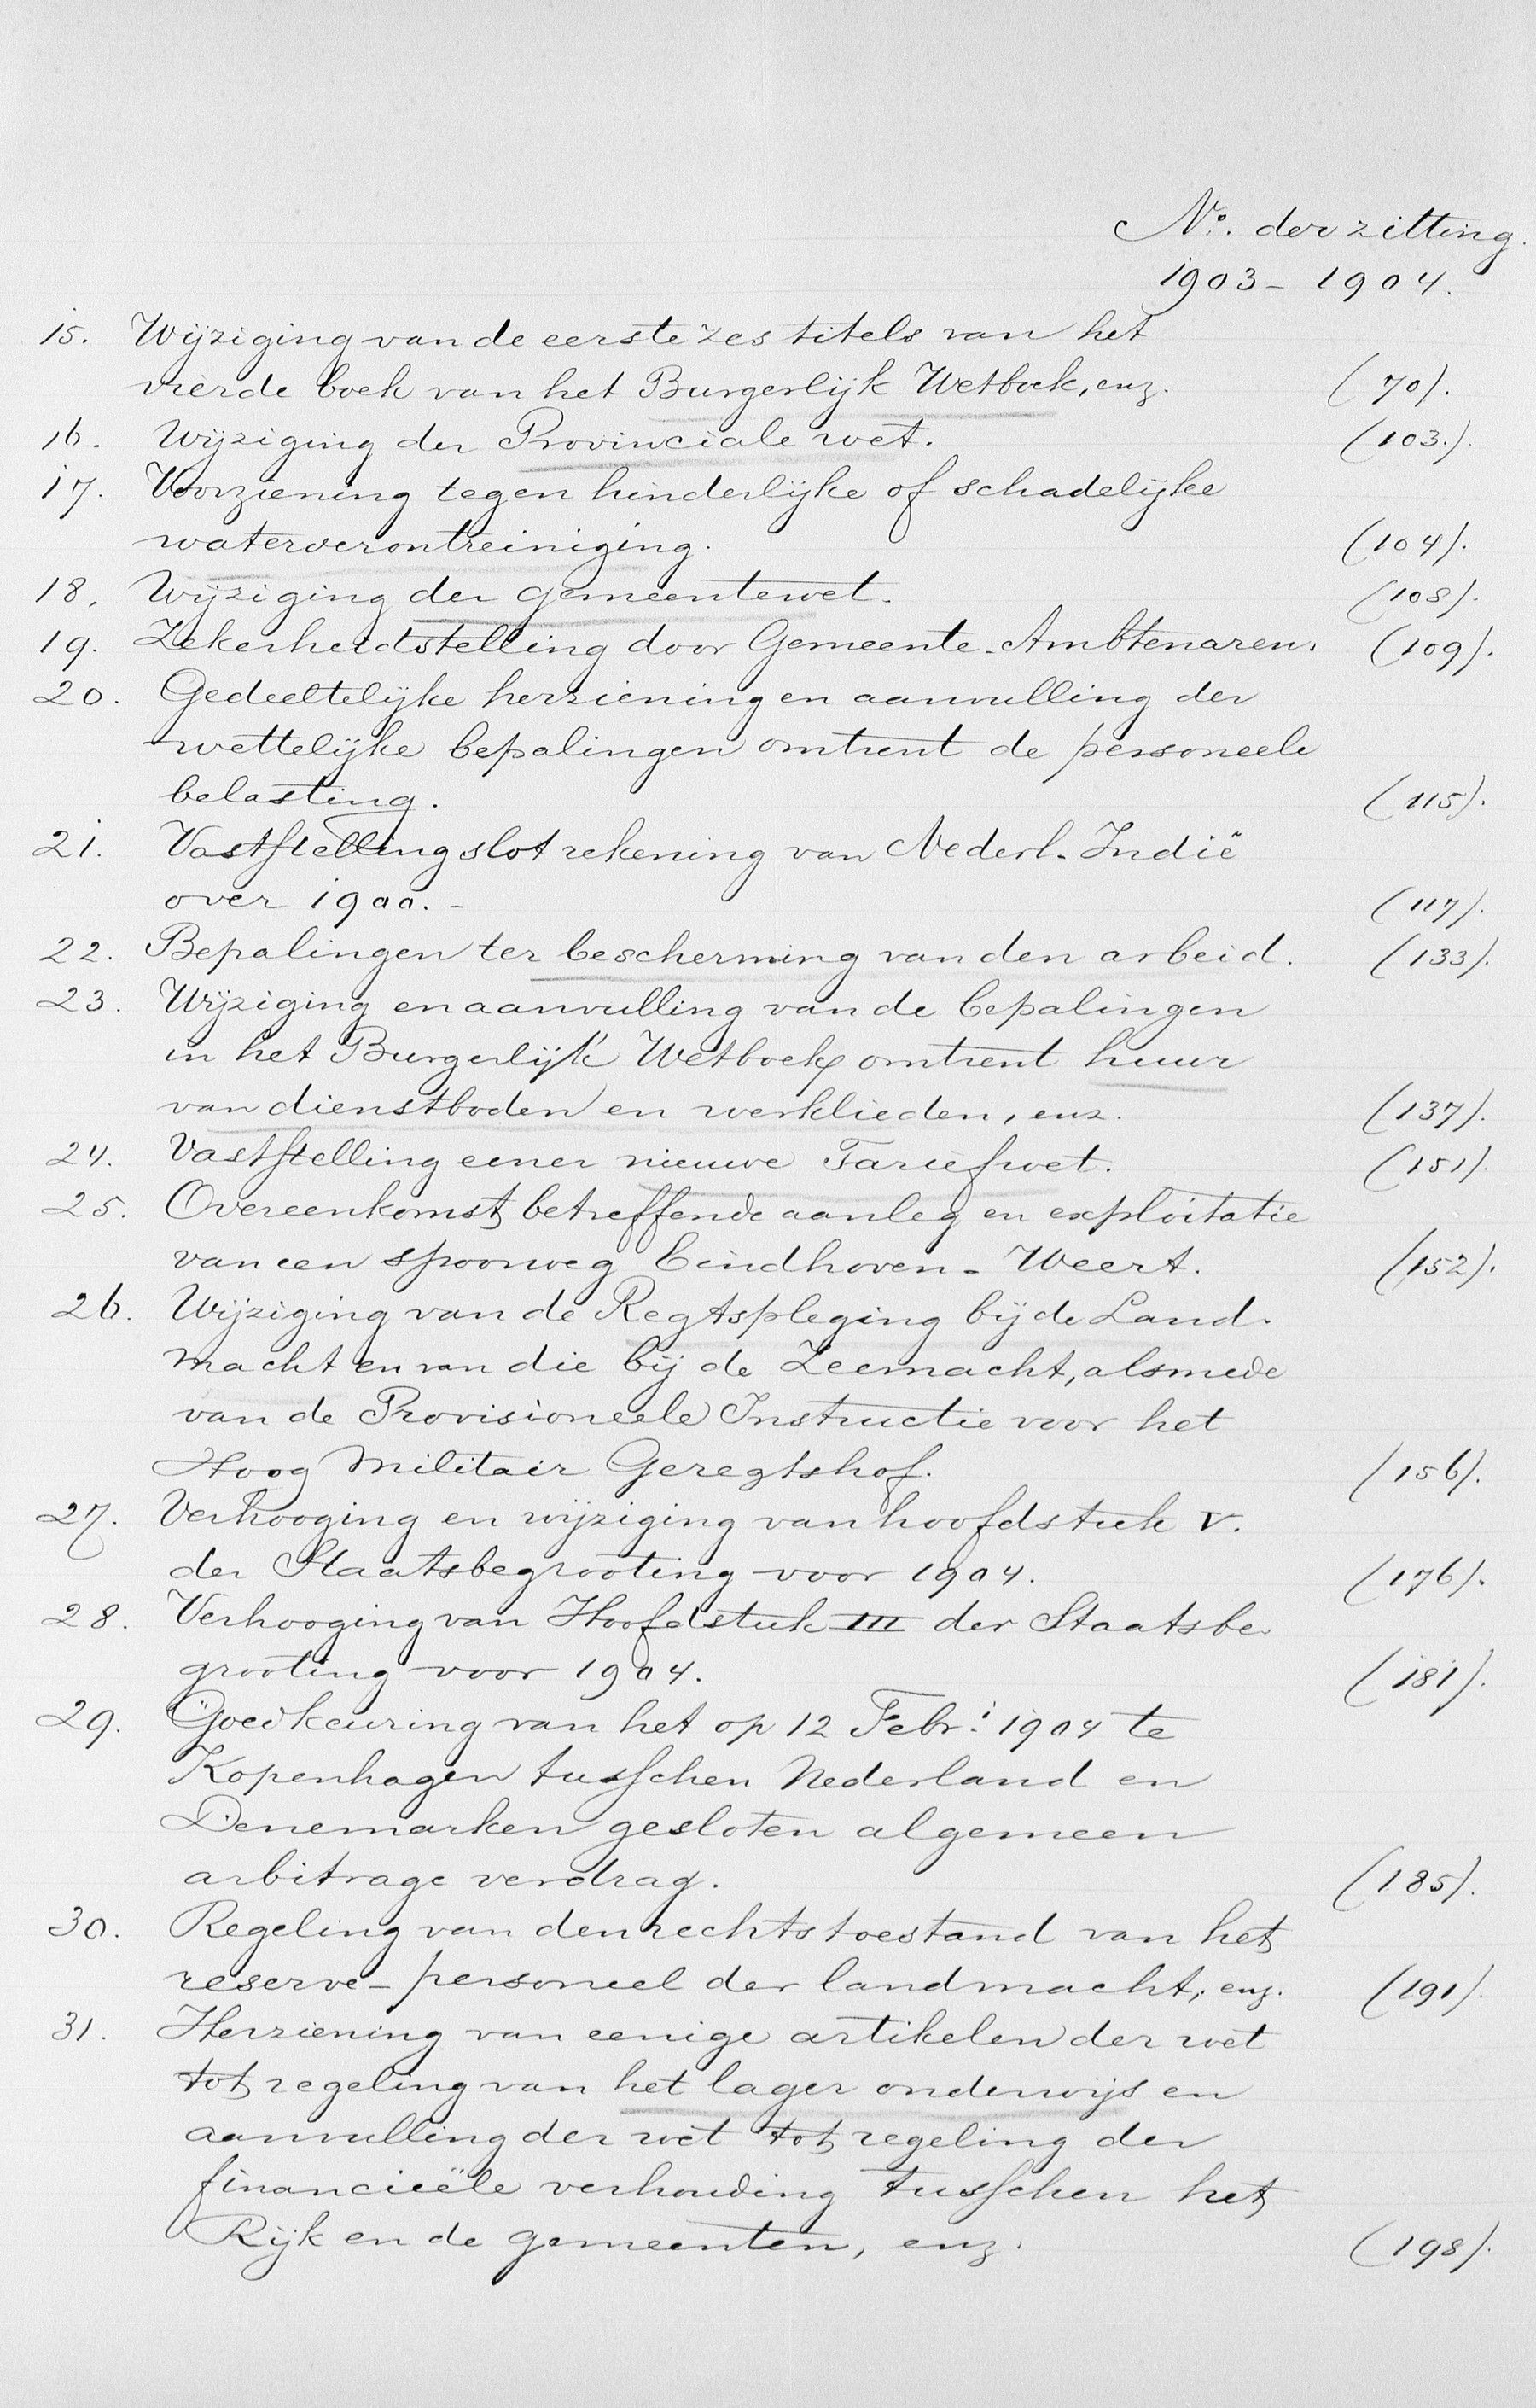 No. der zitting.
1903 - 1904.
15. Wijziging van de eerste zes titels van het
vierde boek van het Burgerlijk Wetboek, enz. (70).
16. Wijziging der Provinciale wet. (103.).
17. Voorziening tegen hinderlijke of schadelijke
waterverontreiniging. (104).
18. Wijziging der gemeentewet. (108).
19. Zekerheidstelling door Gemeente-Ambtenaren. (109).
20. Gedeeltelijke herziening en aanvulling der
wettelijke bepalingen omtrent de personeele
belasting. (115).
21. Vaststelling slot rekening van Nederl. Indië
over 1900. - (117).
22. Bepalingen ter bescherming van den arbeid. (133).
23. Wijziging en aanvulling van de bepalingen
in het Burgerlijk Wetboek omtrent huur
van dienstboden en werklieden, enz. (137).
24. Vaststelling eener nieuwe Tariefwet. (151).
25. Overeenkomst betreffende aanleg en exploitatie
van een spoorweg Eindhoven - Weert. (152).
26. Wijziging van de Regtspleging bij de Land-
macht en van die bij de Zeemacht, alsmede
van de Provisioneele Instructie voor het
Hoog Militair Geregtshof. (156).
27. Verhooging en wijziging van hoofdstuk V.
der Staatsbegrooting voor 1904. (176).
28. Verhooging van Hoofdstuk III der Staatsbe-
grooting voor 1904. (181).
29. Goedkeuring van het op 12 Febr.i 1904 te
Kopenhagen tusschen Nederland en
Denemarken gesloten algemeen
arbitrage verdrag. (185).
30. Regeling van den rechtstoestand van het
reserve - personeel der landmacht, enz. (191).
31. Herziening van eenige artikelen der wet
tot regeling van het lager onderwijs en
aanvulling der wet tot regeling der
financieële verhouding tusschen het
Rijk en de gemeenten, enz. (198).